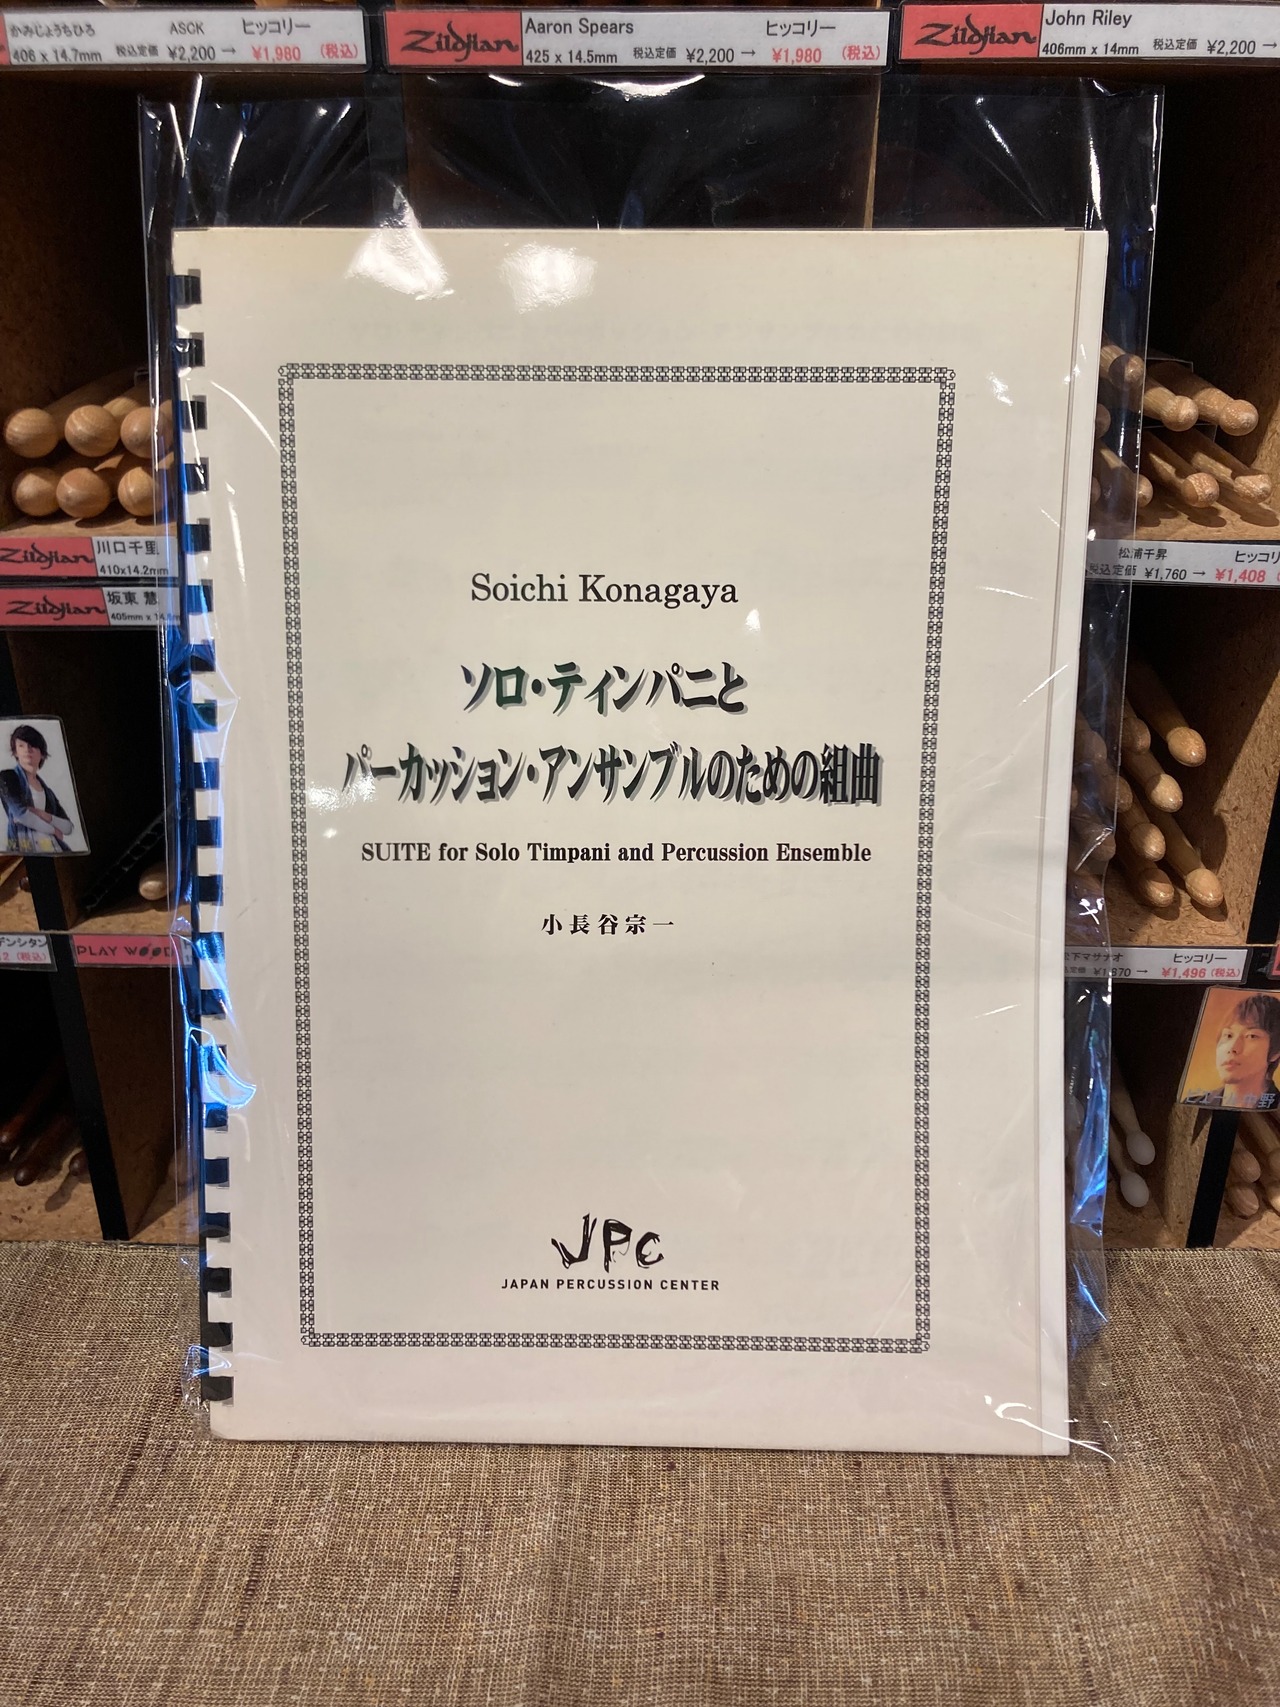 かみじょうちひろ ASCK ヒッコリー
406 x 14.7mm 税込定価 ¥2,200 → ¥1,980 (税込)
Zildjian Aaron Spears ヒッコリー
425 x 14.5mm 税込定価 ¥2,200 → ¥1,980 (税込)
Zildjian John Riley
406mm x 14mm 税込定価 ¥2,200 →
Zildjian 川口千里
410x14.2mm
Zildjian 坂東 慧
405mm x
松浦千昇 ヒッコリ
税込定価 ¥1,760 → ¥1,408
Soichi Konagaya
ソロ・ティンパニと
パーカッション・アンサンブルのための組曲
SUITE for Solo Timpani and Percussion Ensemble
小長谷宗一
PLAY WOOD
下マサナオ ヒッコリー
定価 ¥1,870 → ¥1,496 (税込)
JPC
JAPAN PERCUSSION CENTER